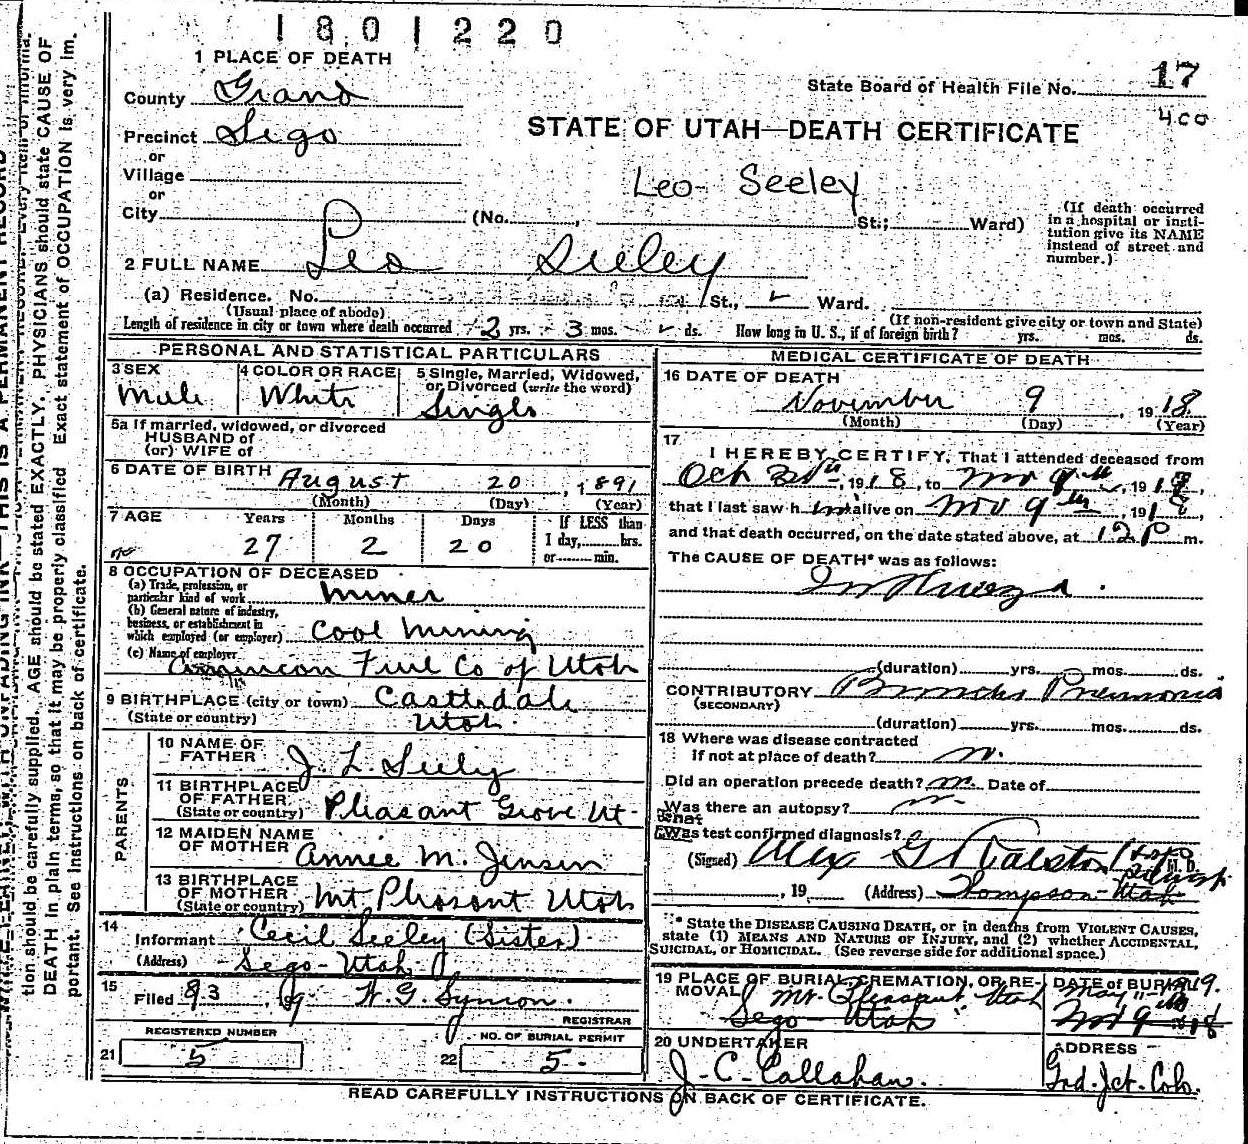 1801220
1 PLACE OF DEATH
County Grand
State Board of Health File No. 17
400
Precinct Sego
STATE OF UTAH—DEATH CERTIFICATE
or
Village
Leo Seeley
or
City (No. , St.; Ward)
(If death occurred in a hospital or institution give its NAME instead of street and number.)
2 FULL NAME Leo Seeley
(a) Residence. No. St., Ward.
(Usual place of abode) (If non-resident give city or town and State)
Length of residence in city or town where death occurred 2 yrs. 3 mos. ds. How long in U. S., if of foreign birth? yrs. mos. ds.
PERSONAL AND STATISTICAL PARTICULARS
3 SEX 4 COLOR OR RACE 5 Single, Married, Widowed, or Divorced (write the word)
Male White Single
5a If married, widowed, or divorced
HUSBAND of
(or) WIFE of
6 DATE OF BIRTH August 20, 1891
(Month) (Day) (Year)
7 AGE Years Months Days If LESS than
27 2 20 1 day, hrs.
or min.
8 OCCUPATION OF DECEASED
(a) Trade, profession, or particular kind of work miner
(b) General nature of industry, business, or establishment in which employed (or employer) Cool mining
(c) Name of employer American Fuel Co of Utah
9 BIRTHPLACE (city or town) Castledale
(State or country) Utah
PARENTS
10 NAME OF FATHER J. L. Seely
11 BIRTHPLACE OF FATHER (State or country) Pleasant Grove Ut-
12 MAIDEN NAME OF MOTHER Annie M. Jensen
13 BIRTHPLACE OF MOTHER (State or country) Mt Pleasant Utah
14
Informant Cecil Seeley (Sister)
(Address) Sego-Utah
15 Filed 93 19
REGISTRAR
REGISTERED NUMBER NO. OF BURIAL PERMIT
21 5 22 5
MEDICAL CERTIFICATE OF DEATH
16 DATE OF DEATH
November 9, 1918
(Month) (Day) (Year)
17
I HEREBY CERTIFY, That I attended deceased from
Oct , 1918, to Nov 9th, 1918,
that I last saw him alive on Nov 9th, 1918,
and that death occurred, on the date stated above, at 120 P m.
The CAUSE OF DEATH* was as follows:
Influenza
(duration) yrs. mos. ds.
CONTRIBUTORY Broncho Pneumonia
(SECONDARY)
(duration) yrs. mos. ds.
18 Where was disease contracted
if not at place of death?
Did an operation precede death? no. Date of
Was there an autopsy? no
What test confirmed diagnosis?
(Signed) Alex G M.D.
, 19 (Address) Thompson-Utah
* State the DISEASE CAUSING DEATH, or in deaths from VIOLENT CAUSES,
state (1) MEANS AND NATURE OF INJURY, and (2) whether ACCIDENTAL,
SUICIDAL, or HOMICIDAL. (See reverse side for additional space.)
19 PLACE OF BURIAL, CREMATION, OR REMOVAL DATE of BURIAL
Mt. Pleasant Utah May 1919.
Sego Utah Nov 9 1918
20 UNDERTAKER ADDRESS
J. C. Callahan. Grd. Jct. Colo.
READ CAREFULLY INSTRUCTIONS ON BACK OF CERTIFICATE.
tion should be carefully supplied. AGE should be stated EXACTLY. PHYSICIANS should state CAUSE OF
DEATH in plain terms, so that it may be properly classified. Exact statement of OCCUPATION is very im-
portant. See instructions on back of certificate.